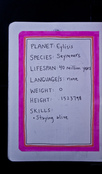 PLANET: Kylius
SPECIES: Soynmars
LIFESPAN: 90 million years
LANGUAGE/S: none
WEIGHT: 0
HEIGHT: 1953798
SKILLS:
• Staying alive